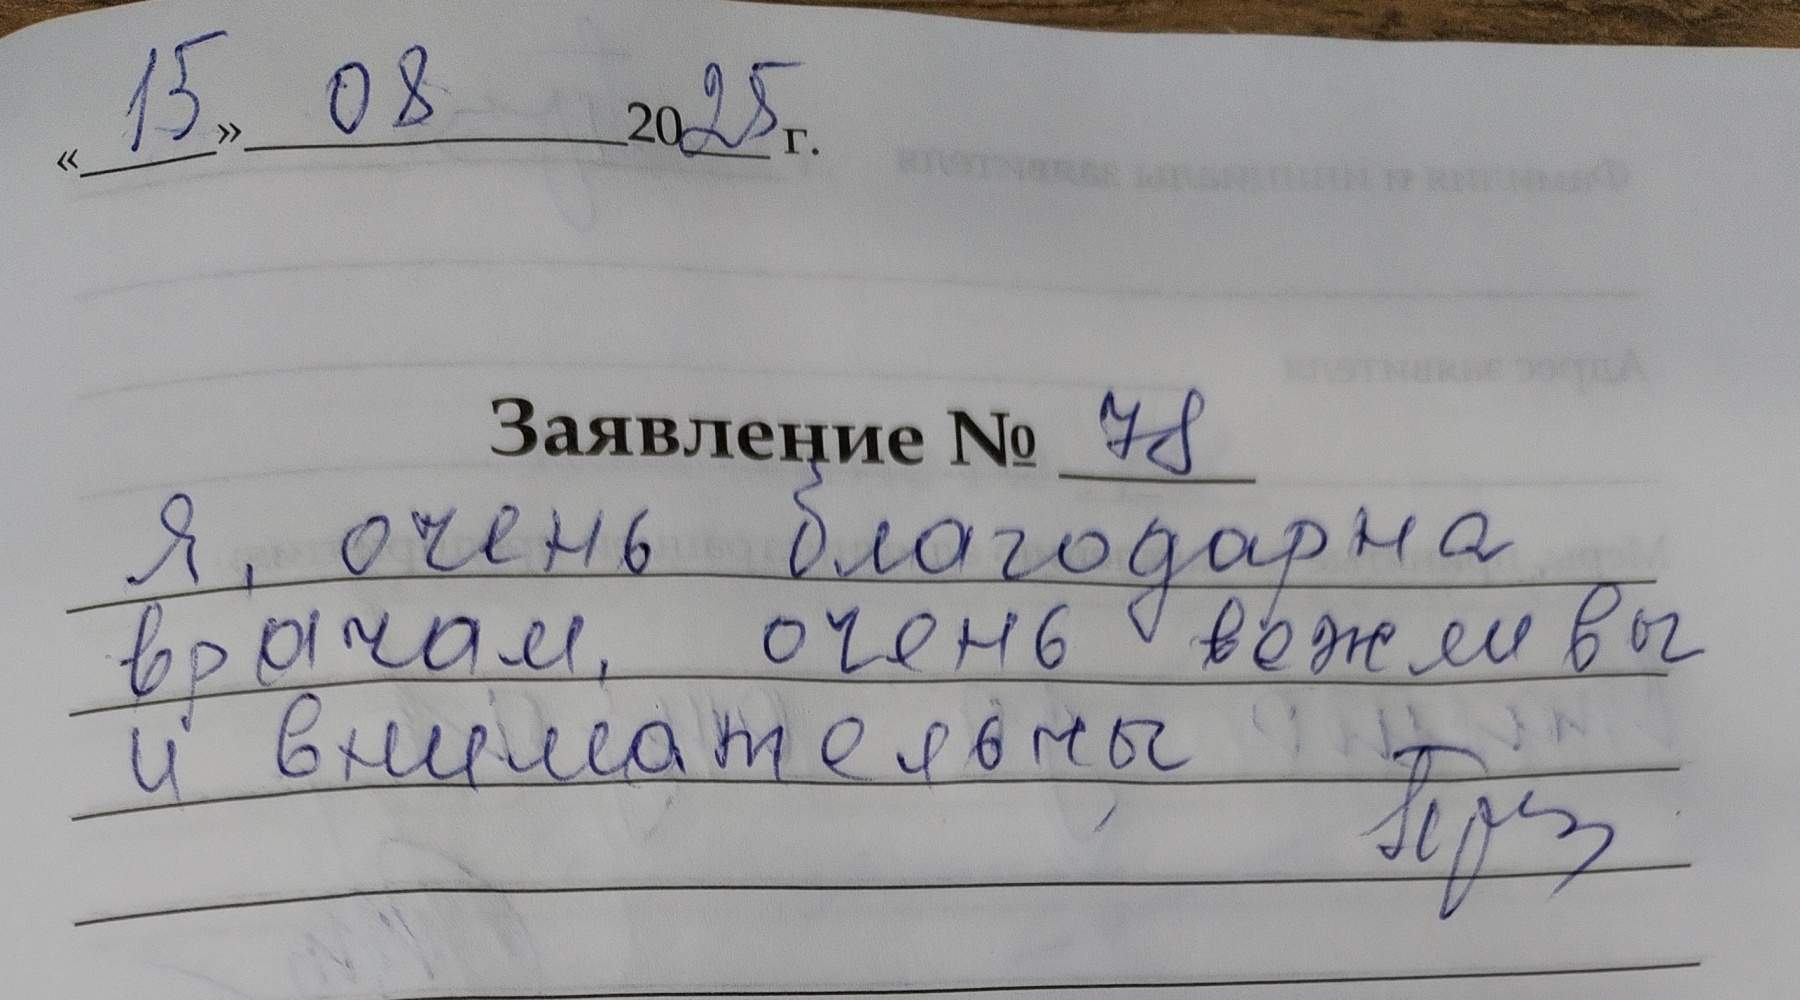 «15» 08 2025 г.
Заявление № 78
Я, очень благодарна
врачам, очень вежливы
и внимательны